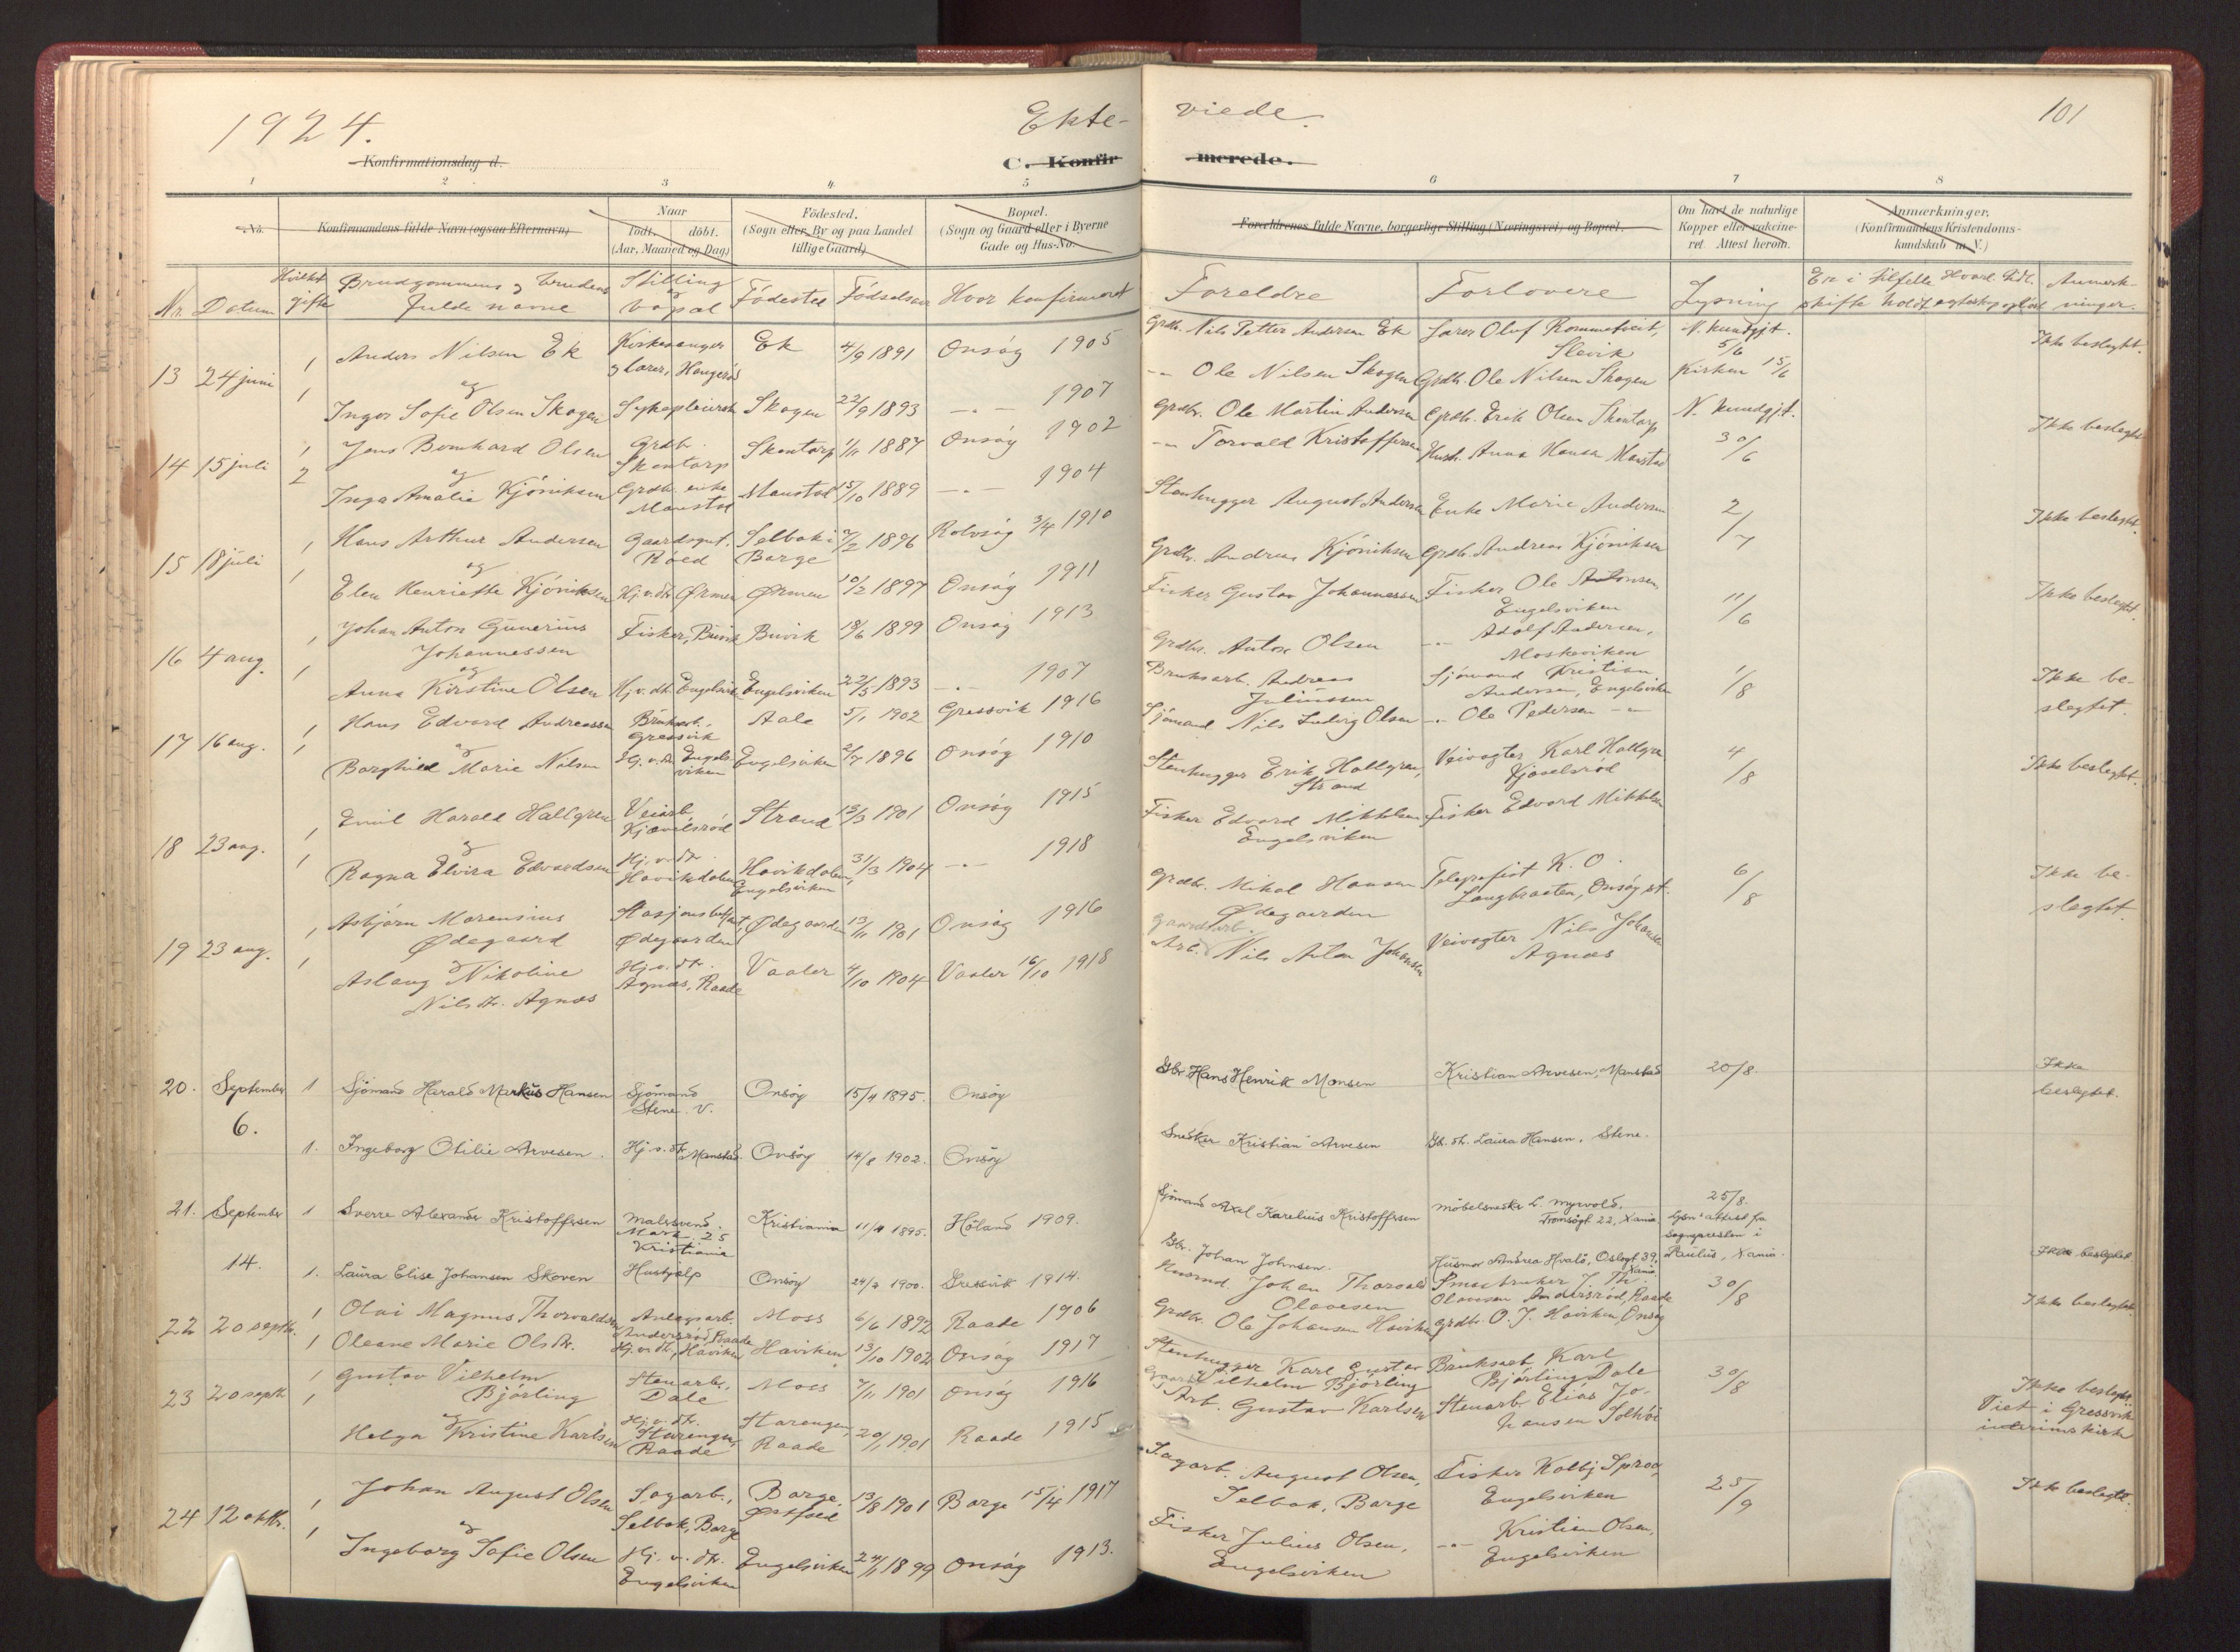 1924.
Ekte-
viede.
101
Konfirmationsdag d.
C. Konfir
merede.
1 2 3 4. 5 6 7 8
No. Konfirmandens fulde Navn (ogsaa Efternavn) Naar født. døbt. (Aar, Maaned og Dag) Fødested. (Sogn eller By og paa Landet tillige Gaard) Bopæl. (Sogn og Gaard eller i Byerne Gade og Hus-No. Forældrenes fulde Navne, borgerlige Stilling (Næringsvei) og Bopæl. Om havt de naturlige Kopper eller vakcine- ret. Attest herom. Anmærkninger. (Konfirmandens Kristendoms- kundskab m. V.)
Nr. Datum Hvilket gifte Brudgommens og brudens fulde navne Stilling og bopæl Fødested Fødselsaar Hvor konfirmeret Foreldre Forlovere Lysning Er i tilfelle skifte holdt Anmerk- ninger.
1 Anders Nilsen Ek Kirkesanger og lærer, Haugerød Ek 4/9 1891 Onsøy 1905 Grdbr. Nils Petter Andersen Ek Lærer Olof Rommetveit, Slevik N. kundgjt. 5/6 Ikke beslegtet.
13 24 juni og
1 Inger Sofie Olsen Skogen Sykepleierske Skogen 22/9 1893 -"- 1907 -"- Ole Nilsen Skogen Grdb. Ole Nilsen Skogen Kirken 15/6
1 Jens Bernhard Olsen Grdbr. Skontorp Skontorp 1/11 1887 Onsøy 1902 Grdbr. Ole Martin Andersen Grdb. Erik Olsen Skontorp N. kundgjt. 30/6 Ikke beslegtet
14 15 juli og
2 Inga Amalie Kjöniksen Grdb. enke Manstad Manstad 15/10 1889 -"- 1904 -"- Torvald Kristoffersen Husb. Anna Hansen Manstad
1 Hans Arthur Andersen Gaardsgut. Röed Selbak i Borge 7/2 1896 Rolvsøy 3/4 1910 Stenhugger August Andersen Enke Marie Andersen 2/7 Ikke beslegtet.
15 18 juli og
1 Elen Henriette Kjöniksen Hj.v.dtr. Ørmen Ørmen 10/2 1897 Onsøy 1911 Grdb. Andreas Kjöniksen Grdb. Andreas Kjöniksen
1 Johan Anton Gunerius Johannessen Fisker, Buvik Buvik 18/6 1899 Onsøy 1913 Fisker Gustav Johannessen Fisker Ole Antonsen, Engelsviken 11/6 Ikke beslegtet.
16 4 aug. og
1 Anna Kirstine Olsen Hj.v.dtr. Engelsvik Engelsviken 22/5 1893 -"- 1907 Grdbr. Anton Olsen -"- Adolf Andersen, Moskeviken
1 Hans Edvard Andreassen Bruksarb. Gressvik Aale 5/1 1902 Gressvik 1916 Bruksarb. Andreas Juliussen Sjömand Kristian Andersen, Engelsviken 1/8 Ikke be- slegtet.
17 16 aug. og
1 Borghild Marie Nilsen Hj.v.dtr. Engels- viken Engelsviken 2/7 1896 Onsøy 1910 Sjömand Nils Ludvig Olsen -"- Ole Pedersen -"-
1 Emil Harald Hallgren Veiarb. Strand 13/3 1901 Onsøy 1915 Stenhugger Erik Hallgren, Strand Veivogter Karl Hallgren 4/8 Ikke beslegtet.
18 23 aug. og
1 Ragna Elvira Edvardsen Hj.v.dtr. Havikdalen Havikdalen, Engelsviken 31/3 1904 -"- 1918 Fisker Edvard Mikkelsen Engelsviken Fisker Edvard Mikkelsen
1 Asbjørn Marensius Ødegaard Stasjonsbetjent, Ødegaarden Ødegaarden 13/11 1901 Onsøy 1916 Grdbr. Mikal Hansen Ødegaarden Telegrafist K. O. Langbraaten, Onsøy st. 6/8 Ikke be- slegtet.
19 23 aug. og
1 Aslaug Nikoline Nilsdtr. Agnæs Hj.v.dtr. Agnæs, Raade Vaaler 4/10 1904 Vaaler 16/10 1918 Gaardsarb. Arb. Nils Anton Johansen Veivogter Nils Johansen Agnæs
20. September 6. 1 Sjömand Harald Markus Hansen Sjömand Stene. V. Onsöy 15/4 1895. Onsöy Gbr. Hans Henrik Monsen Kristian Arvesen, Manstad 20/8 Ikke beslegtet.
1. Ingeborg Otilie Arvesen. Hj.v.dtr. Manstad. Onsöy 14/8 1902. Onsöy Snekker Kristian Arvesen Gb. dtr. Laura Hansen, Stene.
21. September 14. 1 Sverre Alexander Kristoffersen Malersvend. Mark. 25 Kristiania Kristiania 11/4 1895. Höland 1909. Sjömand Axel Karelius Kristoffersen Möbelsnekker L. Myrvold, Tromsögt. 22, Kania. 25/8. lysn. attest fra sognepresten i Paulus, Kania. Ikke beslegtet.
1. Laura Elise Johansen Skoven Hushjelp Onsöy 24/2 1900. Gressvik 1914. Gbr. Johan Johnsen. Husmor Andrea Hvalö, Oslogt. 39, Kania.
22 20 septb. 1 Olai Magnus Thorvaldsen Anlegsarb. Andersröd, Raade Moss 6/6 1892 Raade 1906 Husmd. Johan Thorvald Olavesen Smaabruker J. Th. Olavesen Andersröd, Raade 30/8 Ikke beslegtet
1 Oleane Marie Olsdtr. Hj.v.dtr., Haviken Haviken 13/10 1902 Onsøy 1917 Grdbr. Ole Johansen Haviken Grdbr. O. J. Haviken, Onsøy
23 20 septb. 1 Gustav Vilhelm Björling Stenarb., Dale Moss 7/11 1901 Onsøy 1916 Stenhugger Karl Gustav Vilhelm Björling Bruksarb. Karl Björling Dale 30/8 Ikke beslegtet. Viet i Gressvik interimskirke
og
1 Helga Kristine Karlsen Hj.v.dtr. Starengen, Raade Starengen, Raade 20/1 1901 Raade 1915 Gaards Arb. Gustav Karlsen Stenarb. Elias Jo- hansen Solhöi
1 Johan August Olsen Sagarb., Selbak, Borge Borge Østfold 13/8 1901 Borge 15/4 1917 Sagarb. August Olsen, Selbak, Borge Fisker Kolbj. Sproe, Engelsviken 25/9 Ikke beslegtet.
24 12 oktb. og
1 Ingeborg Sofie Olsen Hj.v.dtr. Engelsviken Engelsviken 24/1 1899 Onsøy 1913. Fisker Julius Olsen, Engelsviken -"- Kristian Olsen, Engelsviken